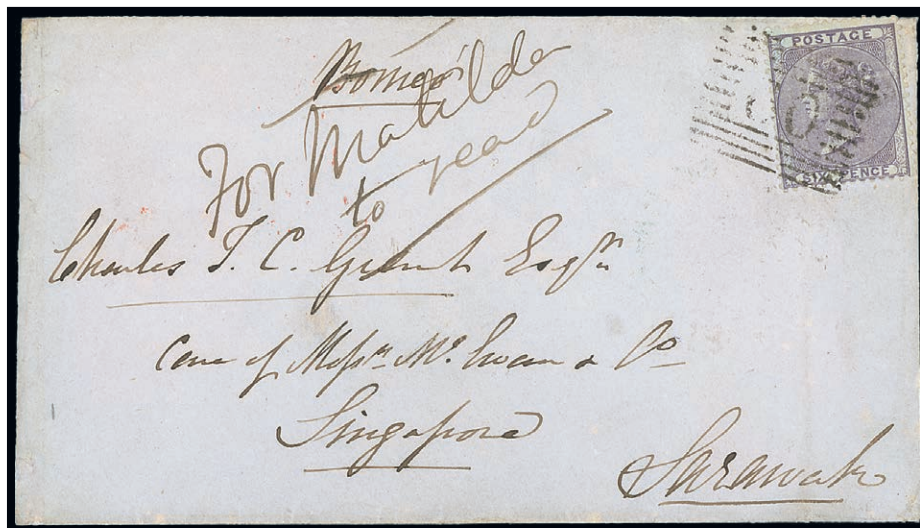 POSTAGE
SIX PENCE
Borneo
For Matilda
to read
Charles T. C. Grant Esqre
Care of Messrs Mc Ewan & Co
Singapore
Sarawak